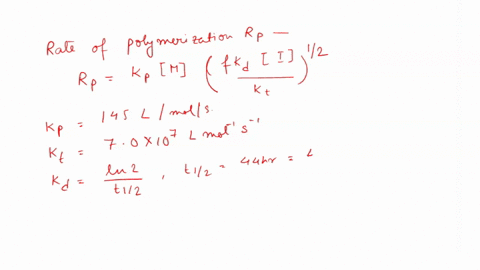 Rate of polymerization Rp —
Rp = Kp [M] (fKd [I] / Kt)^1/2
Kp = 145 L/mol/s.
Kt = 7.0 × 10^7 L mol^-1 s^-1
Kd = ln 2 / t1/2 , t1/2 = 44hr = 4